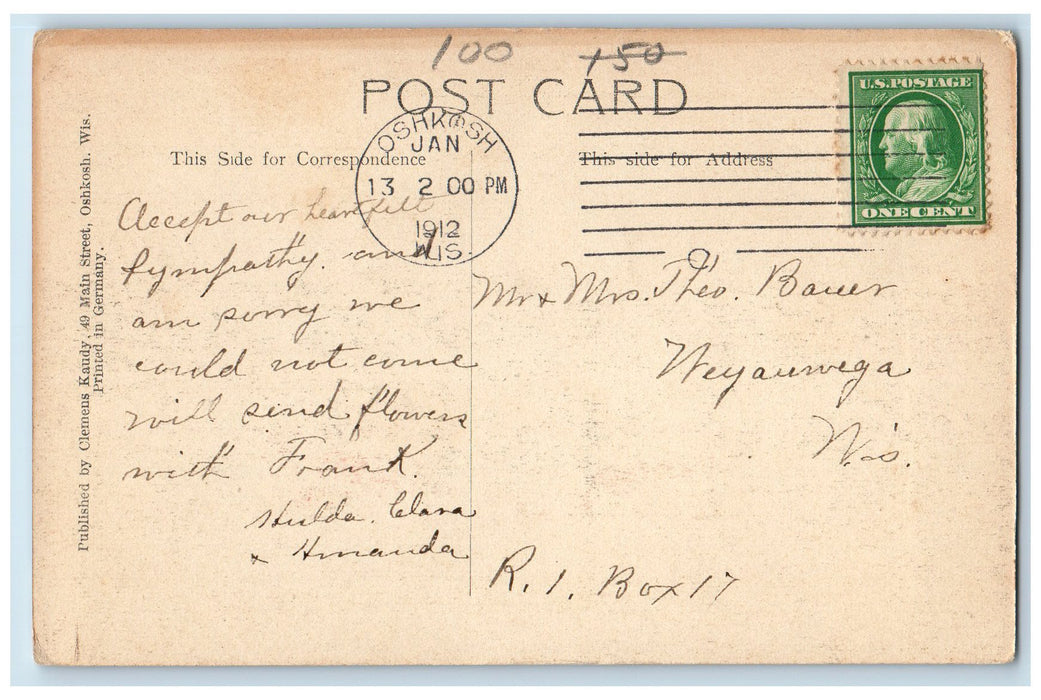 100 150
POST CARD
U.S. POSTAGE
ONE CENT
OSHKOSH
JAN
13 2 00 PM
1912
WIS.
This Side for Correspondence
This side for Address
Accept our heartfelt
Sympathy. and
am sorry we
could not come
will send flowers
with Frank.
Hulda. Clara
& Amanda
Mr & Mrs. Theo. Bauer
Weyauwega
Wis.
R. 1. Box 17
Published by Clemens Kaudy, 49 Main Street, Oshkosh. Wis.
Printed in Germany.